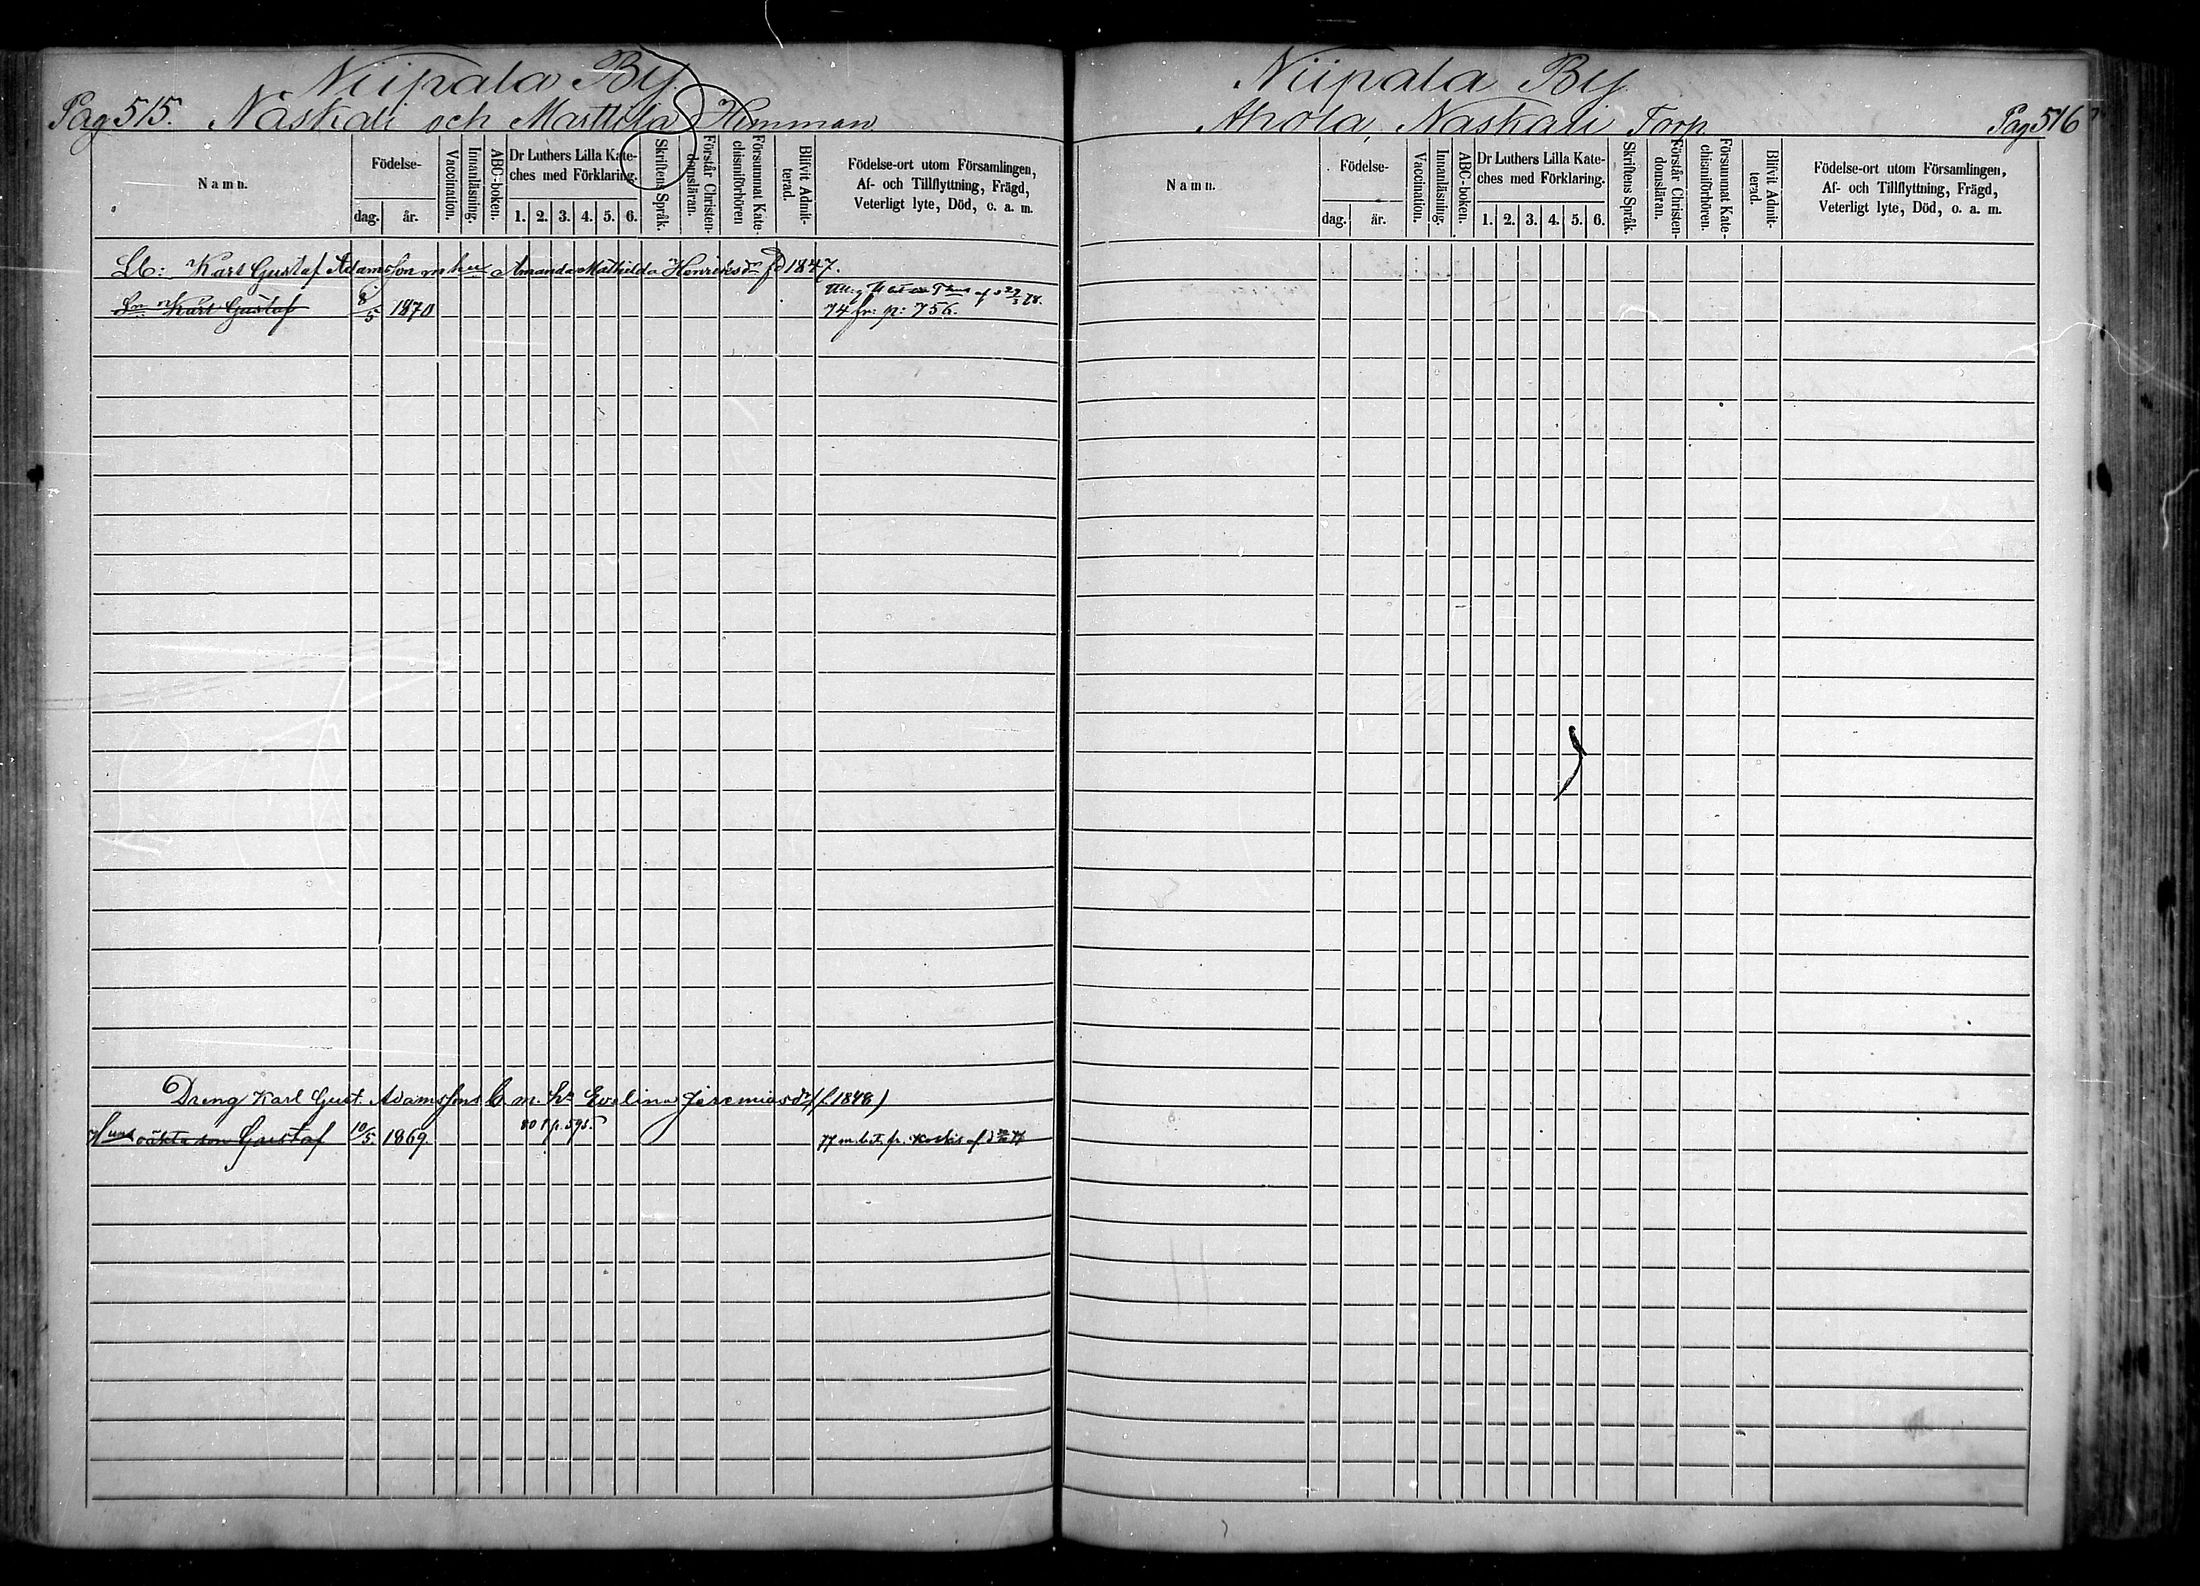 Niipala By.
Pag 515. Näskali och Marttila Hemman
Namn.
Födelse-
dag. år.
Vaccination.
Innanläsning.
ABC-boken.
Dr Luthers Lilla Kate-
ches med Förklaring.
1. 2. 3. 4. 5. 6.
Skriftens Språk.
Förstår Christen-
domsläran.
Försummat Kate-
chismiförhören
Blifvit Admit-
terad.
Födelse-ort utom Församlingen,
Af- och Tillflyttning, Frägd,
Veterligt lyte, Död, o. a. m.
Karl Gustaf Adamsson m hu Amanda Mathilda Henriksdr fd 1847.
Sn Karl Gustaf 8/5 1870
74 fr: p: 756.
Dreng Karl Gust. Adamssons m. Evelina Jeremiasdr (f. 1848)
80 t p. 595.
Huns oäkta son Gustaf 10/5 1869. 77 m. b. t. fr. Koskis af
Niipala By
Ahola, Naskali Torp Pag 516
Namn.
Födelse-
dag. år.
Vaccination.
Innanläsning.
ABC-boken.
Dr Luthers Lilla Kate-
ches med Förklaring.
1. 2. 3. 4. 5. 6.
Skriftens Språk.
Förstår Christen-
domsläran.
Försummat Kate-
chismiförhören.
Blifvit Admit-
terad.
Födelse-ort utom Församlingen,
Af- och Tillflyttning, Frägd,
Veterligt lyte, Död, o. a. m.